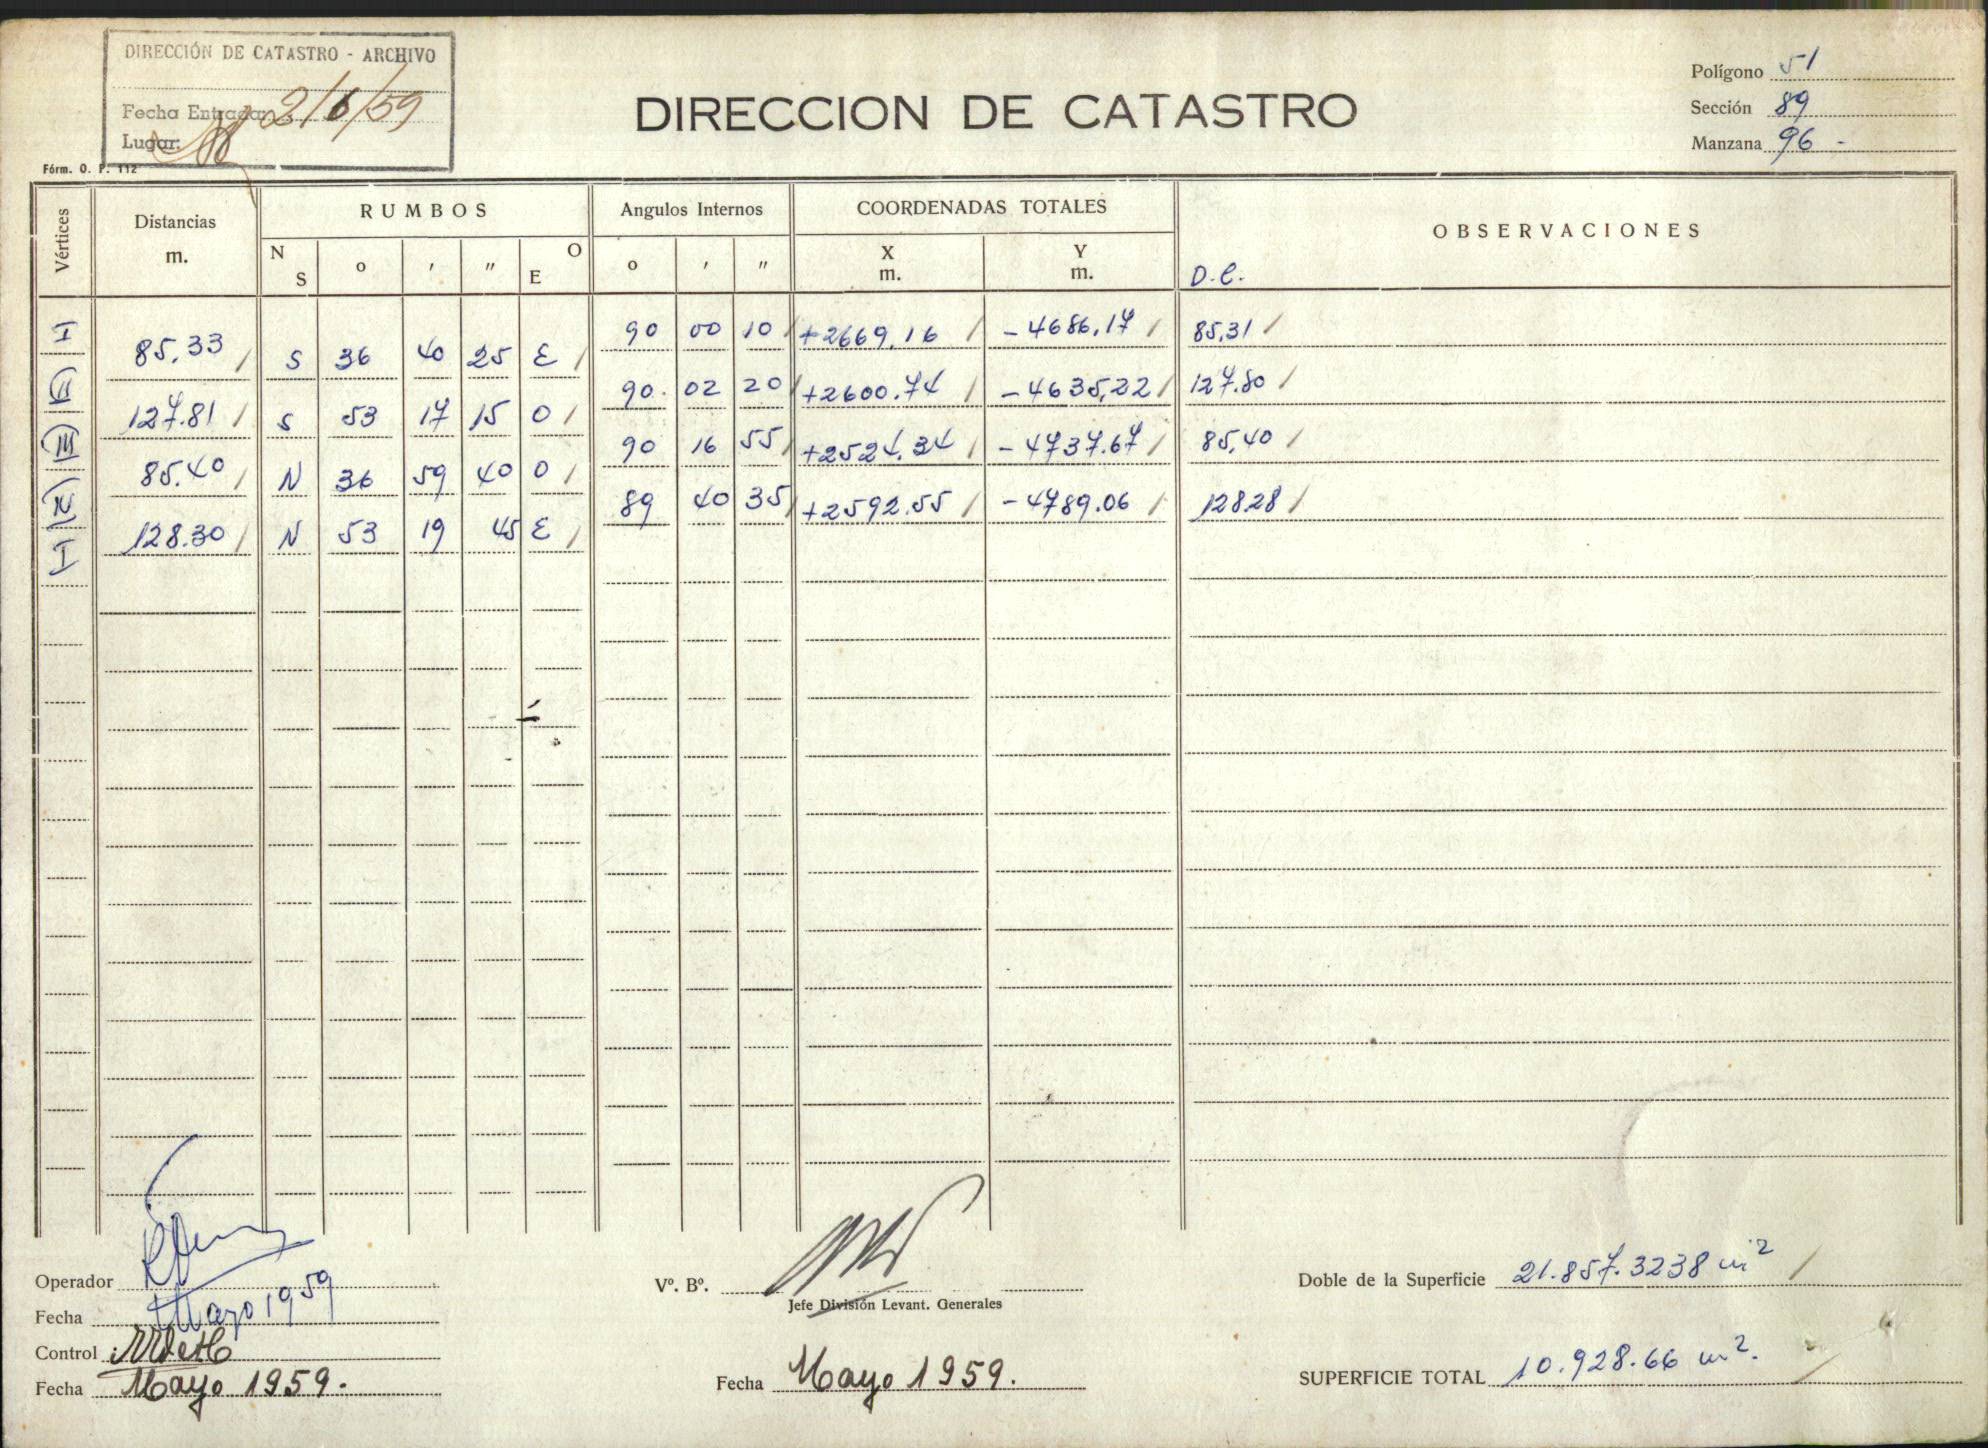 DIRECCIÓN DE CATASTRO - ARCHIVO
Fecha Entrada: 2/6/59
Lugar:
Fórm. O. P. 112
DIRECCION DE CATASTRO
Polígono 51
Sección 89
Manzana 96 -
Vértices Distancias m. RUMBOS Angulos Internos COORDENADAS TOTALES OBSERVACIONES
N S o ' " O E o ' " X m. Y m. D.C.
I 90 00 10 / +2669.16 / -4686.17 / 85,31 /
85.33 / S 36 40 25 E /
II 90. 02 20 / +2600.74 / -4635,22 / 127.80 /
127.81 / S 53 17 15 O /
III 90 16 55 / +2524.34 / -4737.67 / 85,40 /
85.40 / N 36 59 40 O /
IV 89 40 35 / +2592.55 / -4789.06 / 128.28 /
128.30 / N 53 19 45 E /
I
Operador
Fecha Mayo 1959
Control
Fecha Mayo 1959.
Vº. Bº.
Jefe División Levant. Generales
Fecha Mayo 1959.
Doble de la Superficie 21.857.3238 m² /
SUPERFICIE TOTAL 10.928.66 m². /